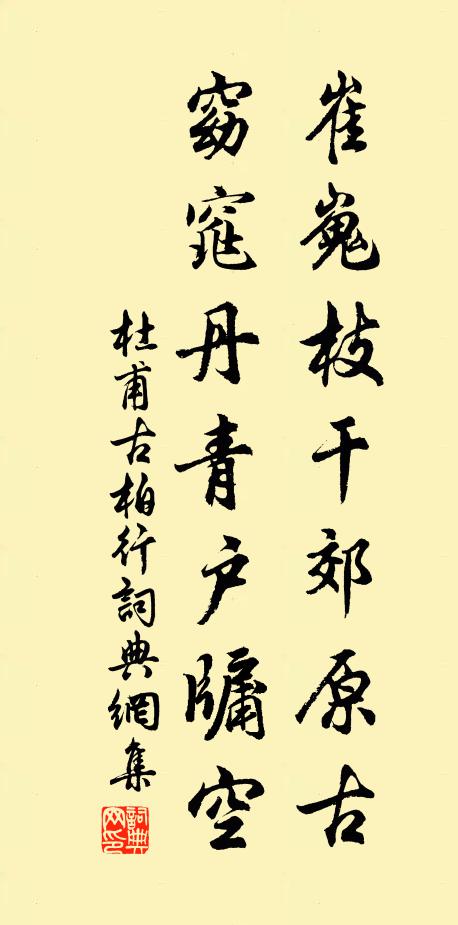 崔嵬枝干郊原古
窈窕丹青户牖空
杜甫古柏行詞典網集
詞典网印